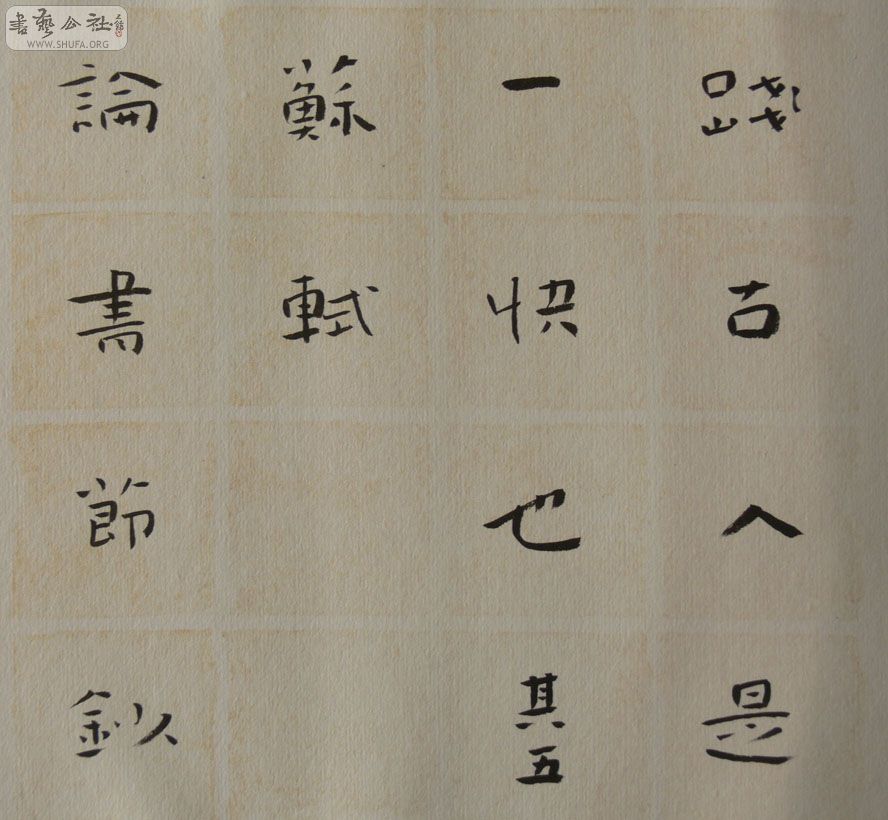 踐古人是
一快也其五
蘇軾
論書節鈔
書藝公社
WWW.SHUFA.ORG